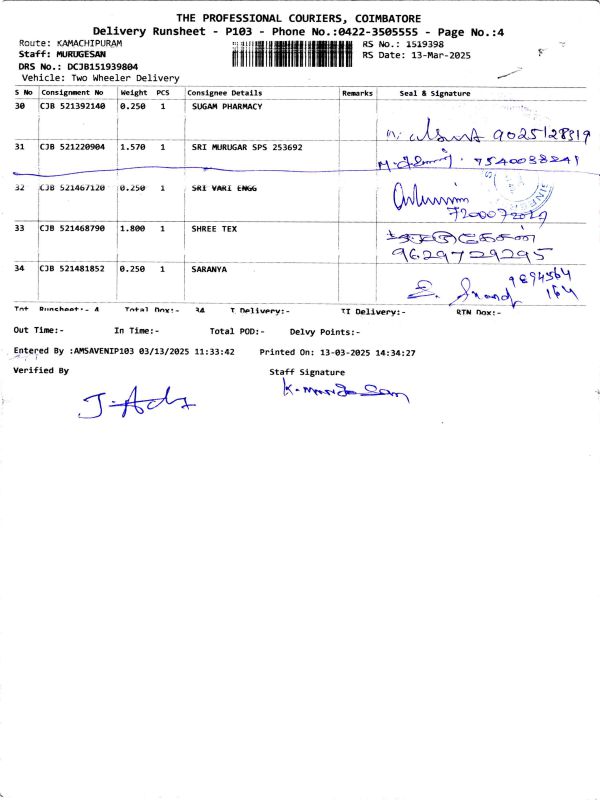 THE PROFESSIONAL COURIERS, COIMBATORE
Delivery Runsheet - P103 - Phone No.:0422-3505555 - Page No.:4
Route: KAMACHIPURAM
RS No.: 1519398
Staff: MURUGESAN
RS Date: 13-Mar-2025
DRS No.: DCJB151939804
Vehicle: Two Wheeler Delivery
S No Consignment No Weight PCS Consignee Details Remarks Seal & Signature
30 CJB 521392140 0.250 1 SUGAM PHARMACY
9025128319
31 CJB 521220904 1.570 1 SRI MURUGAR SPS 253692
7540038241
32 CJB 521467120 0.250 1 SRI VARI ENGG
7200072019
33 CJB 521468790 1.800 1 SHREE TEX
9629729295
34 CJB 521481852 0.250 1 SARANYA
9894564
164
Tot Runsheet:- 4 Total Dox:- 34 I Delivery:- II Delivery:- RTN Dox:-
Out Time:- In Time:- Total POD:- Delvy Points:-
Entered By :AMSAVENIP103 03/13/2025 11:33:42 Printed On: 13-03-2025 14:34:27
Verified By Staff Signature